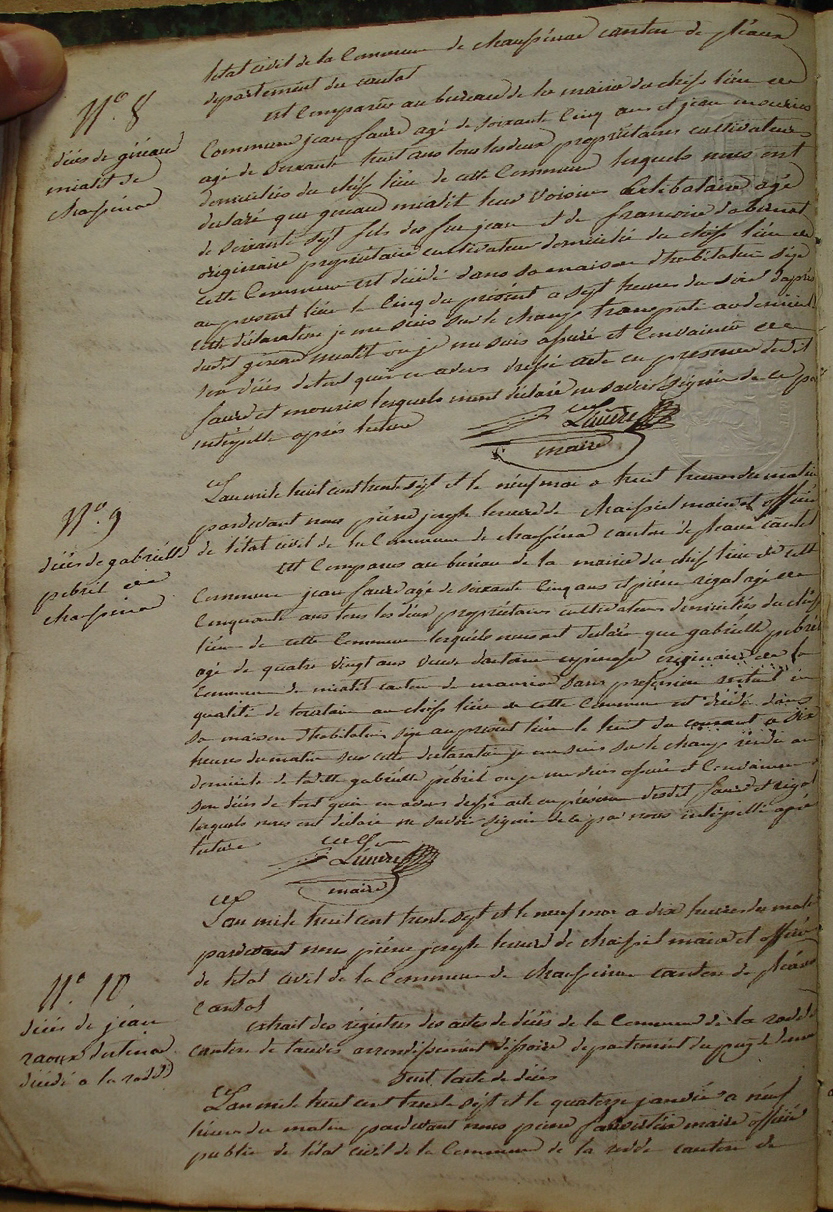 létat civil de la Commune de chaussenac canton de pleaux
département du cantal
N.º 8
décès de géraud
mialit de
chaussenac
est Comparu au bureau de la mairie du chef lieu de
Commune jean faure agé de soixante Cinq ans et jean
agé de soixante huit ans tous les deux propriétaires cultivateurs
domiciliés du chef lieu de cette Commune lesquels nous ont
déclaré que géraud mialit leur voisin Celibataire agé
de soixante sept fils de feu jean et de francoise
originaire propriétaire cultivateur domicilié du chef lieu de
cette Commune est décédé dans sa maison d'habitation size
au présent lieu le Cinq du présent a sept heures du soir d'après
cette déclaration je me suis sur le champ transporté au domicile
dudit géraud mialit ou je me suis assuré et Convaincu de
son décès de tout quoi en avons dressé acte en présence desdit
faure et lesquels nont déclaré ne savoir signer de ce
intérpellé après lecture
maire
N.º 9
décès de gabriélle
pébril de
chaussenac
L'an mile huit cent trente sept et le neuf mai a huit heures du matin
pardevant nous pierre joseph de maire et officié
de létat civil de la Commune de chaussenac canton de pleaux cantal
est Comparus au bureau de la mairie du chef lieu de cette
Commune jean faure agé de soixante Cinq ans et pierre rigal agé de
Cinquante ans tous les deux propriétaires cultivateurs domiciliés du chef
lieu de cette Commune lesquels nous ont déclaré que gabriélle pébril
agé de quatre vingt ans veuve originaire de la
Commune de mialit canton de mauriac sans profession restant en
qualité de locataire au chef lieu de cette Commune est décédé dans
sa maison d'habitation size au présent lieu le huit du courant a dix
heures du matin sur cette déclaration je me suis sur le champ rendu au
domicile de ladite gabriélle pébril ou je me suis assuré et Convaincu de
son décès de tout quoi en avons dressé acte en présence desdit faure et rigal
lesquels nous ont déclaré ne savoir signer de ce par nous intérpellé après
lecture
maire
N.º 10
décès de jean
raoux
décédé a la
L'an mile huit cent trente sept et le neuf mai a dix heures du matin
pardevant nous pierre joseph de maire et officié
de létat civil de la Commune de chaussenac canton de pleaux
Cantal
extrait des régistres des actes de décès de la Commune de la
canton de tauves arrondissement d'issoire département du puy de dome
Suit lacte de décès
L'an mile huit cent trente sept et le quatorze janvier a neuf
heures du matin pardevant nous pierre maire officié
public de létat civil de la Commune de la canton de